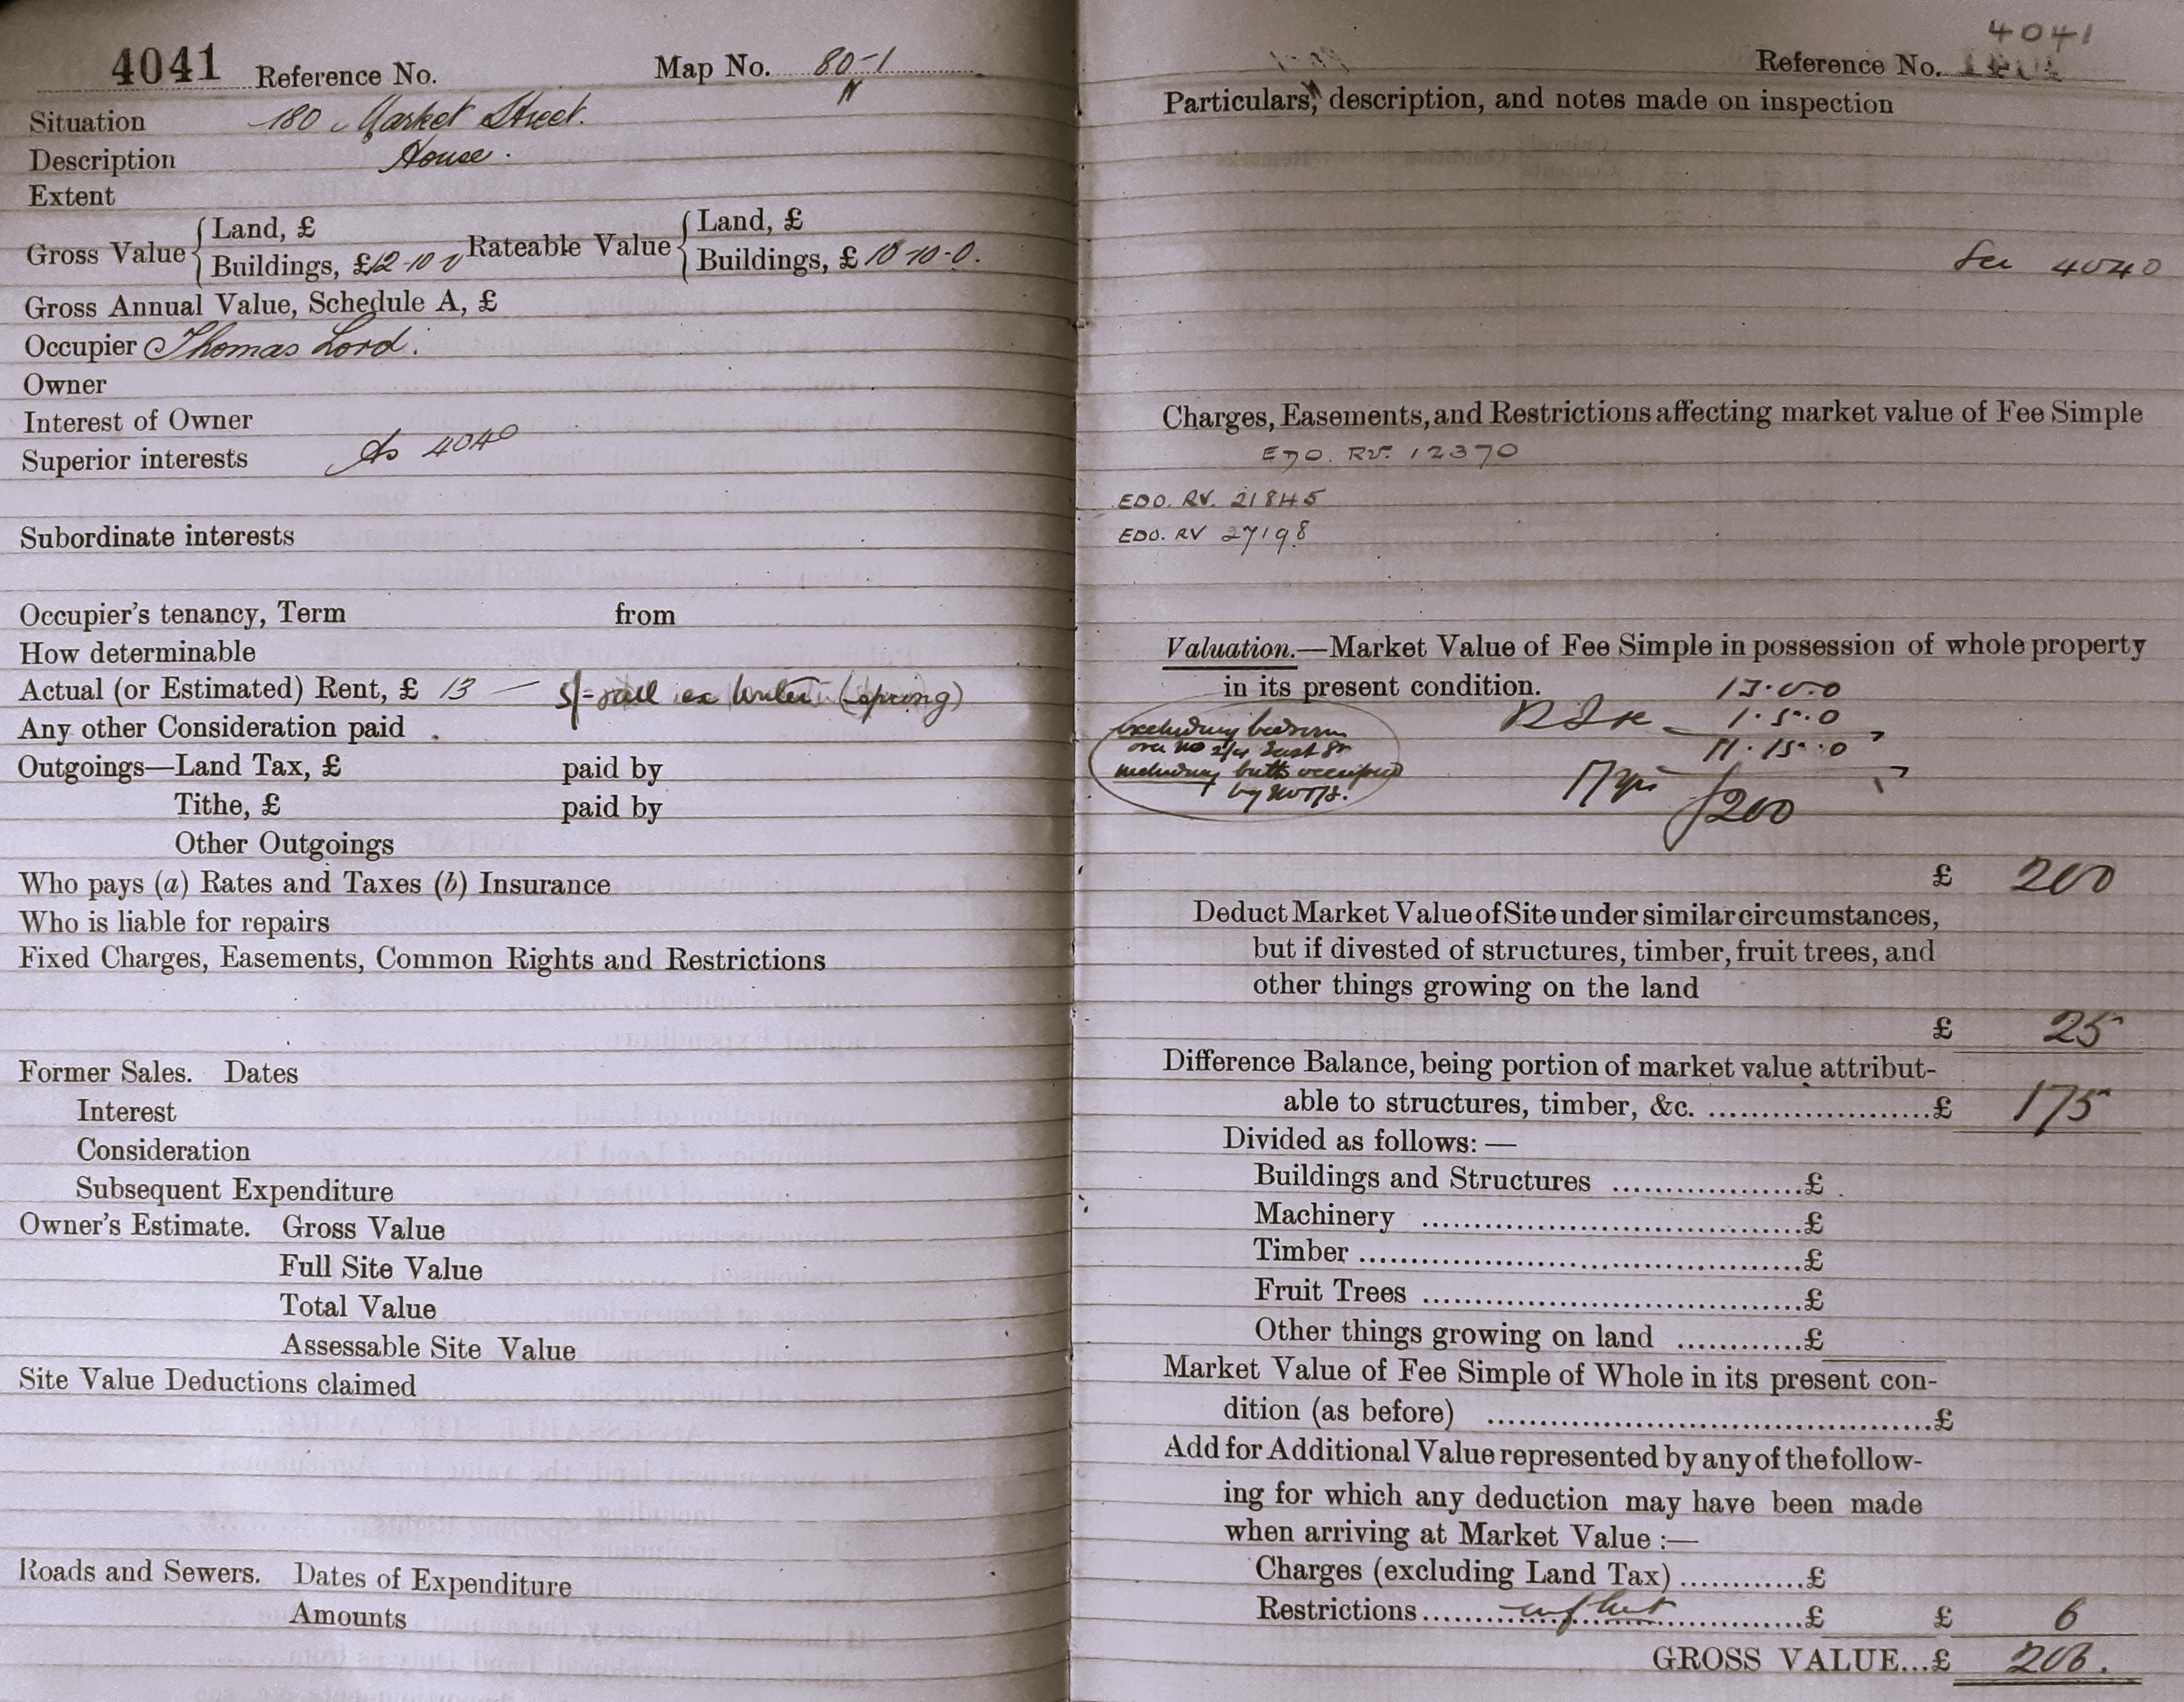 4041 Reference No. Map No. 80-1
Situation 180 Market Street.
Description House.
Extent
Gross Value { Land, £
Buildings, £12-10-0 Rateable Value { Land, £
Buildings, £ 10-10-0.
Gross Annual Value, Schedule A, £
Occupier Thomas Lord.
Owner
Interest of Owner
Superior interests As 4040
Subordinate interests
Occupier's tenancy, Term from
How determinable
Actual (or Estimated) Rent, £ 13 — 5/- ex Water (spring)
Any other Consideration paid
Outgoings—Land Tax, £ paid by
Tithe, £ paid by
Other Outgoings
Who pays (a) Rates and Taxes (b) Insurance
Who is liable for repairs
Fixed Charges, Easements, Common Rights and Restrictions
Former Sales. Dates
Interest
Consideration
Subsequent Expenditure
Owner's Estimate. Gross Value
Full Site Value
Total Value
Assessable Site Value
Site Value Deductions claimed
Roads and Sewers. Dates of Expenditure
Amounts
4041
Reference No.
Particulars, description, and notes made on inspection
See 4040
Charges, Easements, and Restrictions affecting market value of Fee Simple
EDO. RV. 12370
EDO. RV. 21845
EDO. RV 27198
Valuation.—Market Value of Fee Simple in possession of whole property
in its present condition. 13.0.0
1.5.0
11.15.0
excluding bedroom
over No 2/4
including butts occupied
by
17 yrs £200
£ 200
Deduct Market Value of Site under similar circumstances,
but if divested of structures, timber, fruit trees, and
other things growing on the land
£ 25
Difference Balance, being portion of market value attribut-
able to structures, timber, &c. £ 175
Divided as follows:—
Buildings and Structures £
Machinery £
Timber £
Fruit Trees £
Other things growing on land £
Market Value of Fee Simple of Whole in its present con-
dition (as before) £
Add for Additional Value represented by any of the follow-
ing for which any deduction may have been made
when arriving at Market Value :—
Charges (excluding Land Tax) £
Restrictions £ £ 6
GROSS VALUE...£ 206.